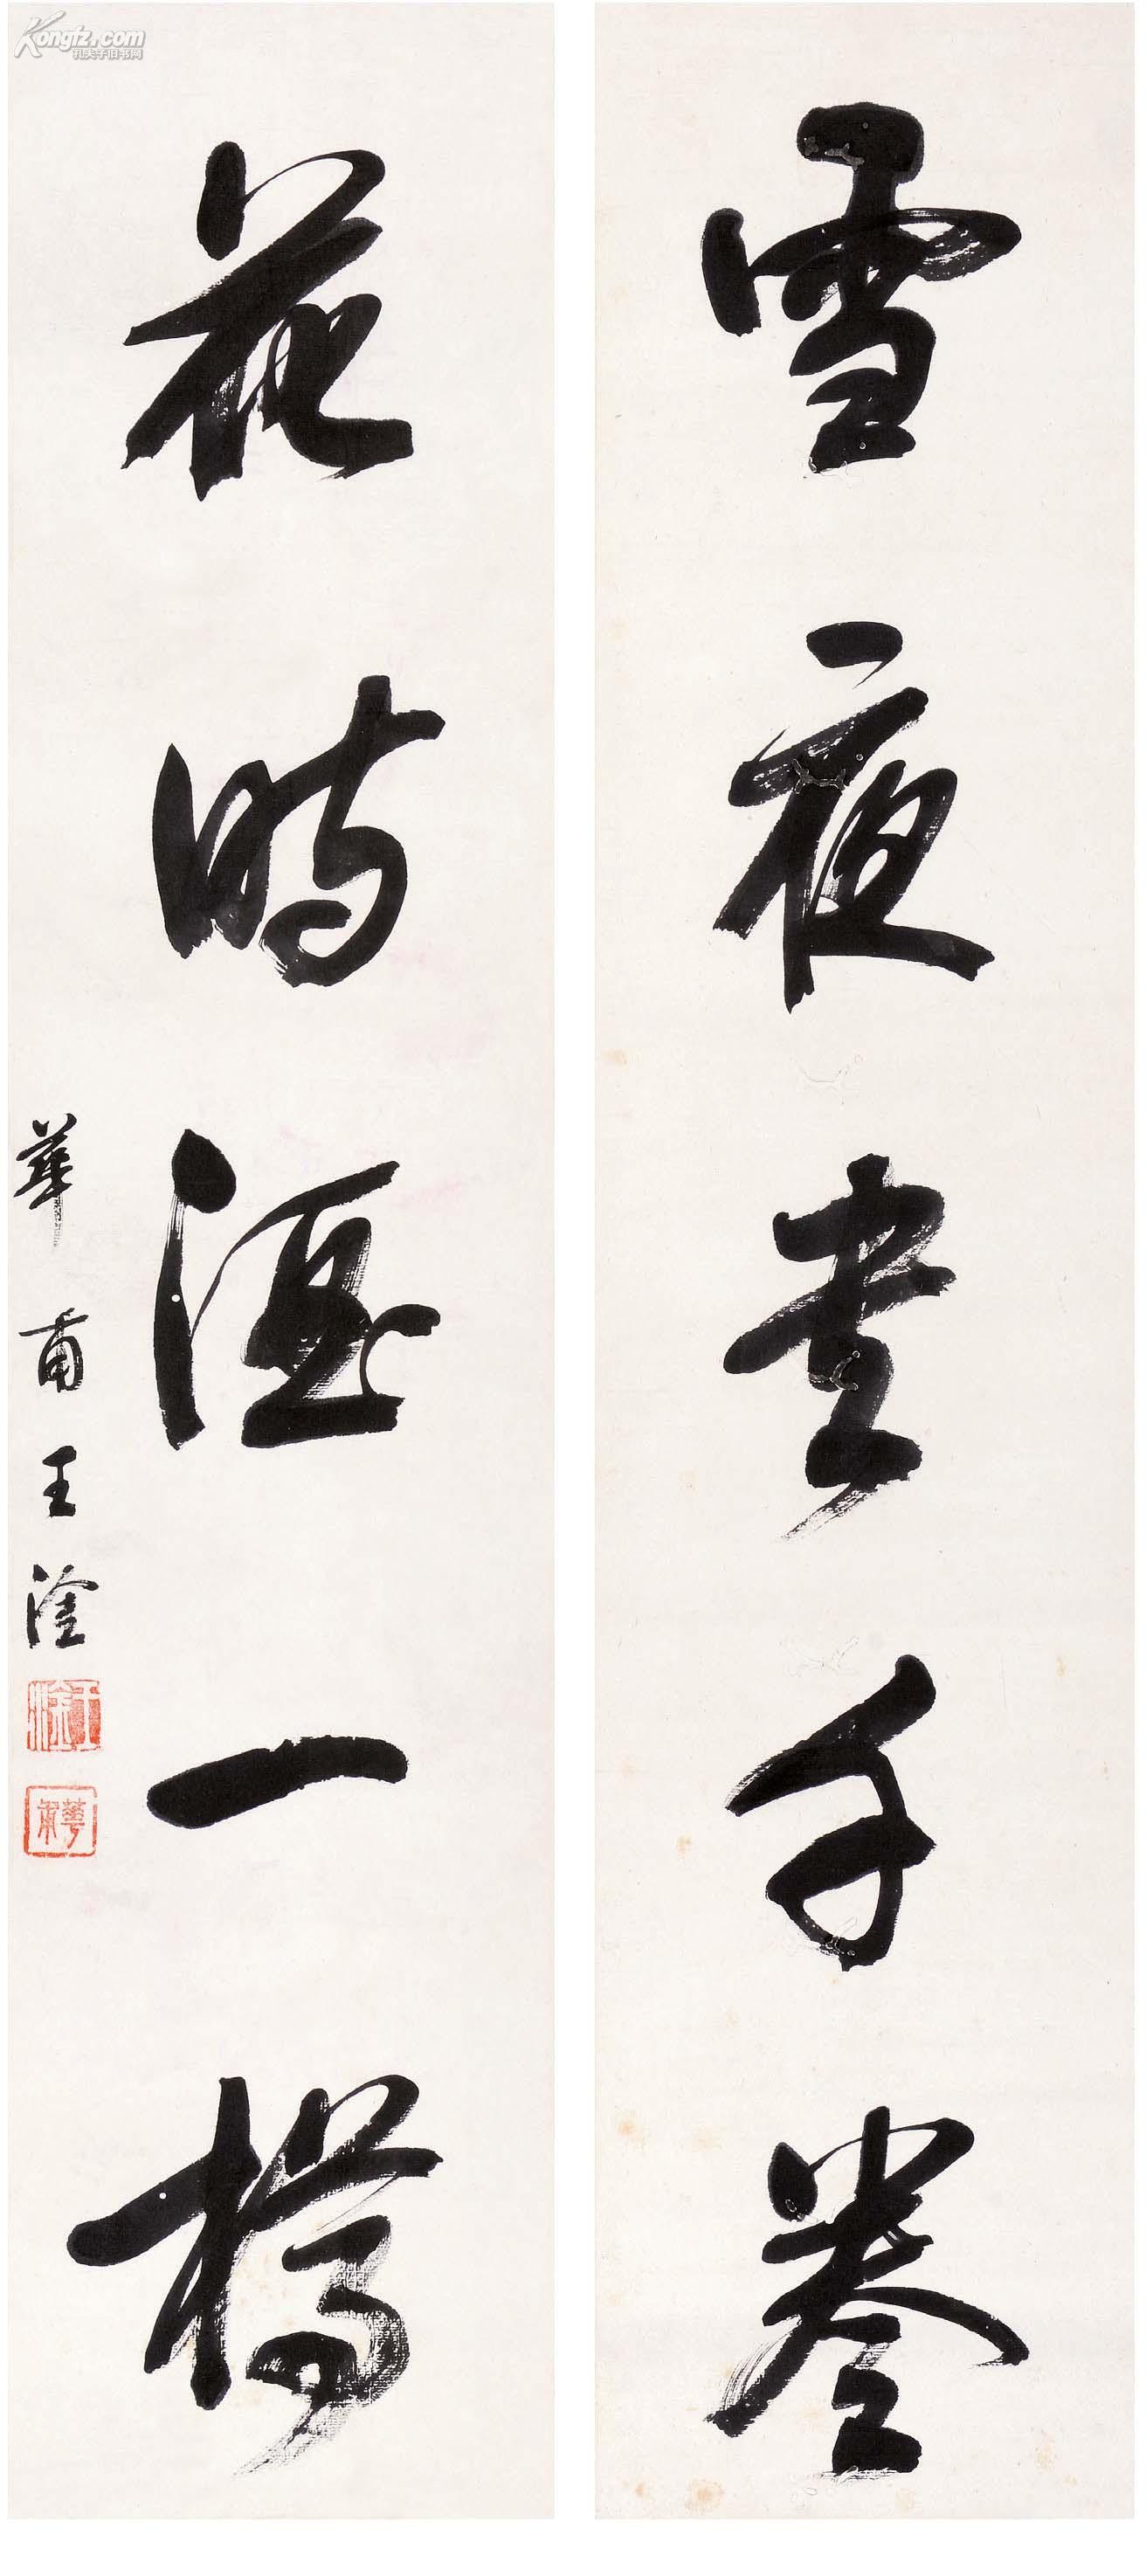 雪夜書千卷
花時酒一樽
華甫王淦
王淦
華甫
Kongfz.com
孔夫子旧书网